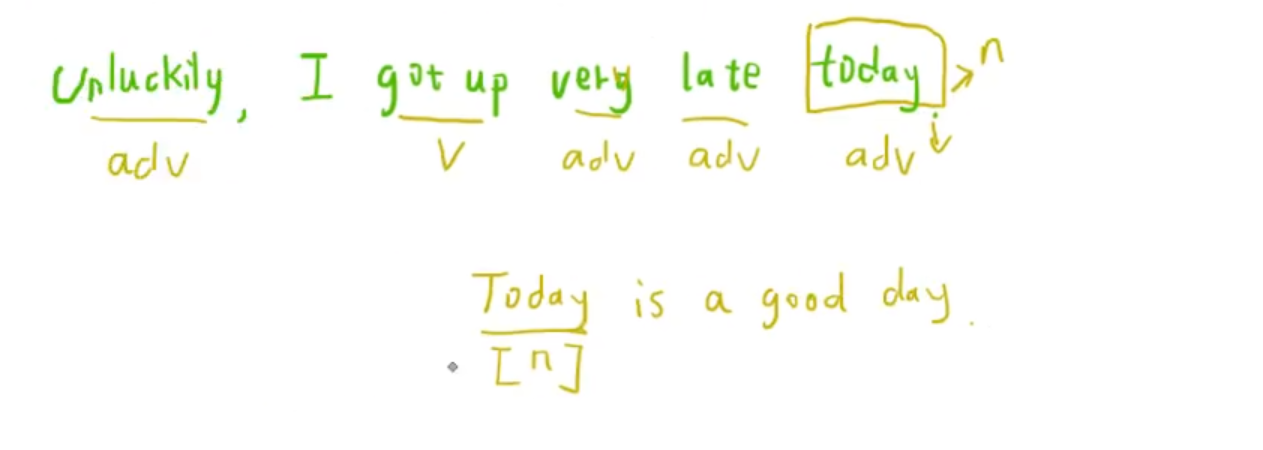 Unluckily, I got up very late today. → n
adv V adv adv adv ↓
Today is a good day.
[n]